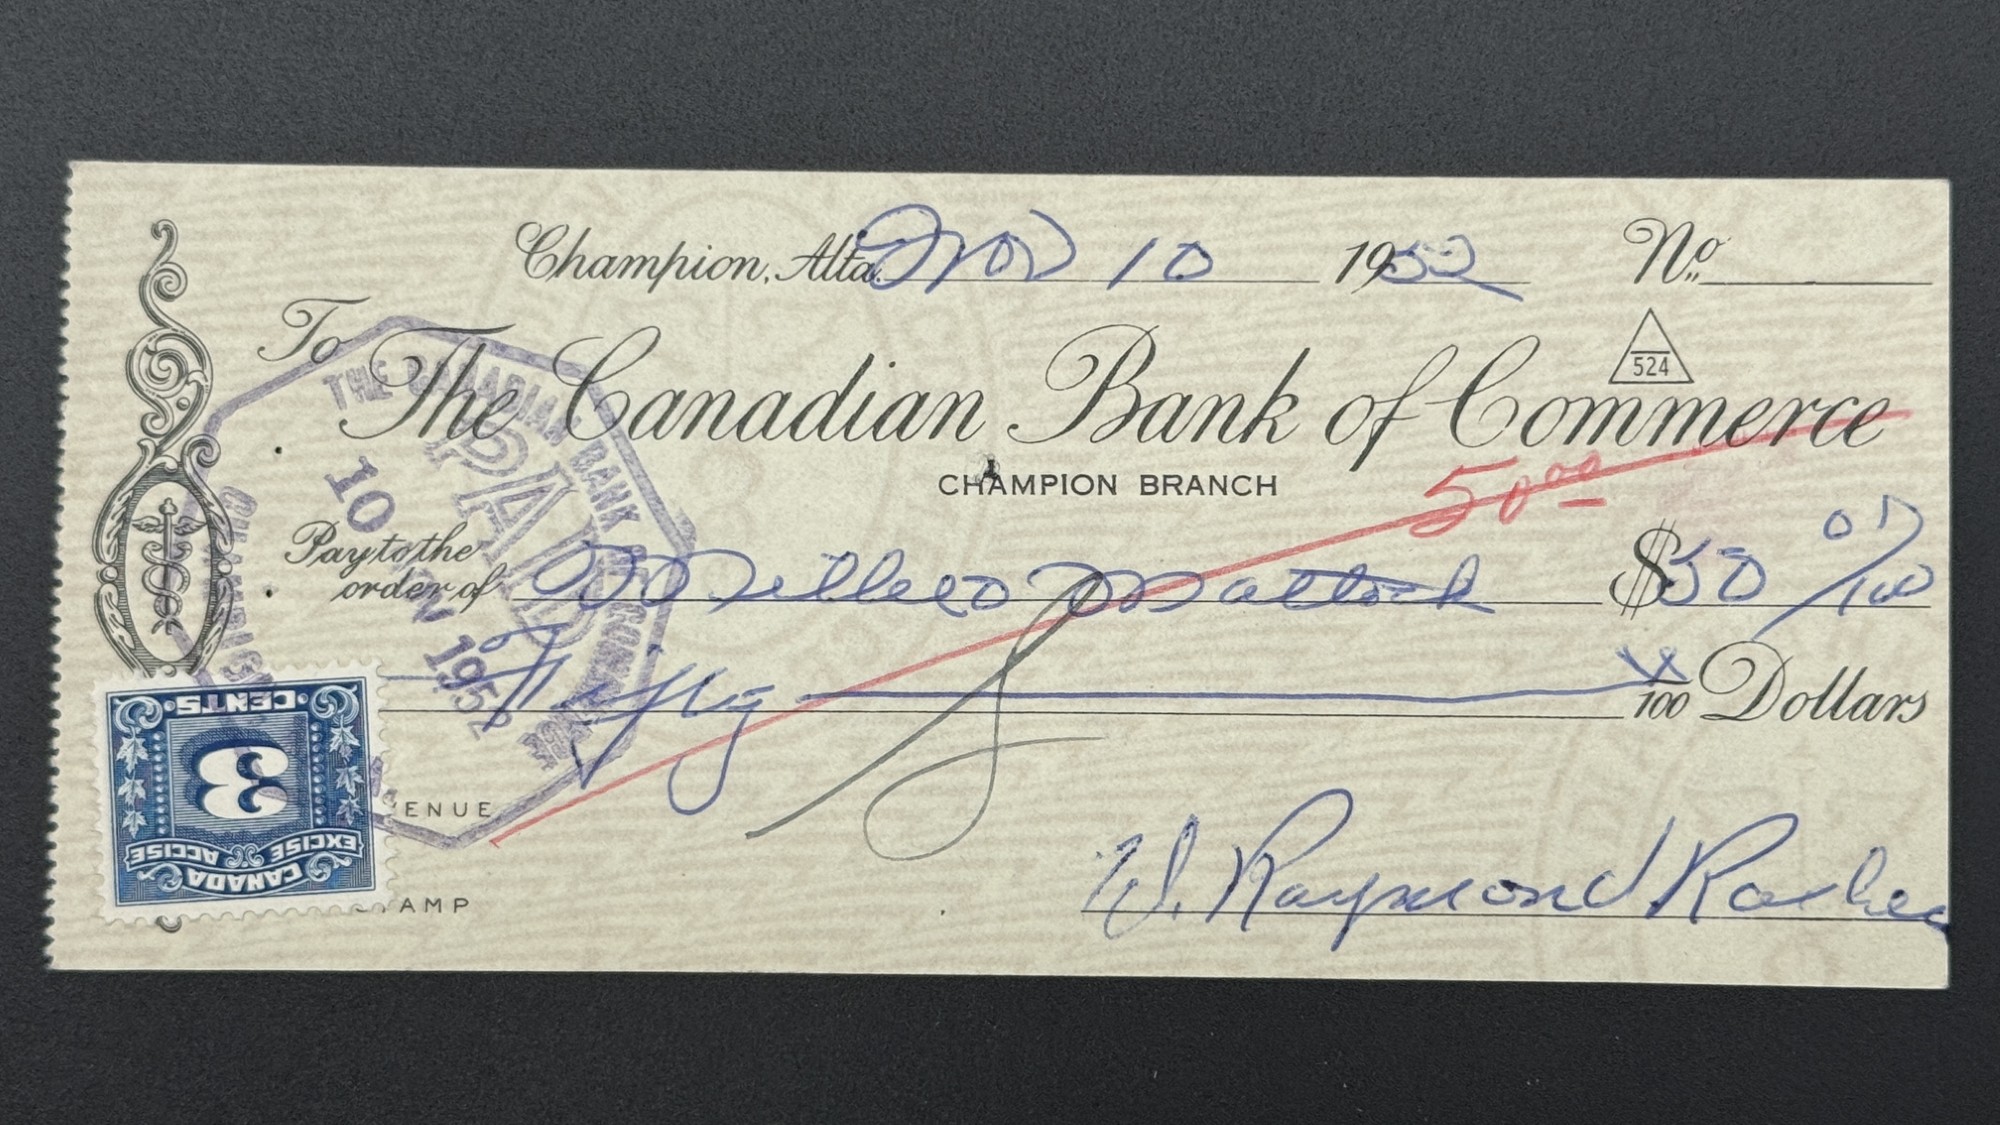 Champion, Alta. Nov 10 1952 No.
524
To The Canadian Bank of Commerce
CHAMPION BRANCH
50.00
Pay to the order of Mattock $50 00/100
Fifty xx/100 Dollars
THE CANADIAN BANK OF COMMERCE
PAID
10 NOV 1952
CHAMPION
CENTS
3
EXCISE ACCISE
CANADA
ENUE
AMP
W. Raymond